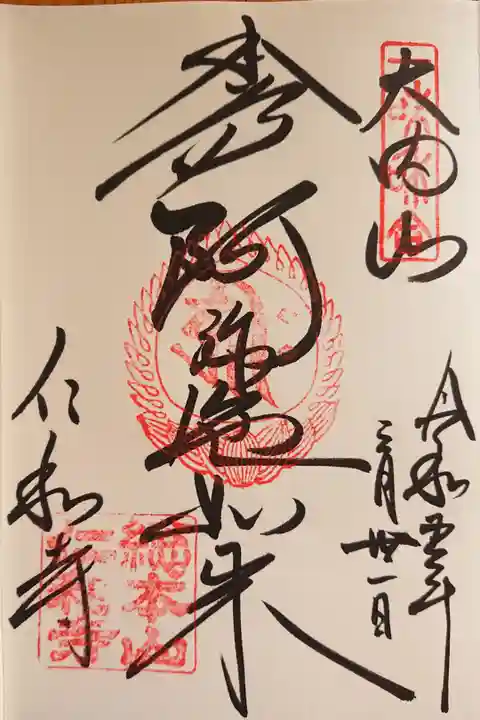 大内山
令和五年
三月卅一日
阿弥陀如来
仁和寺
総本山
仁和寺